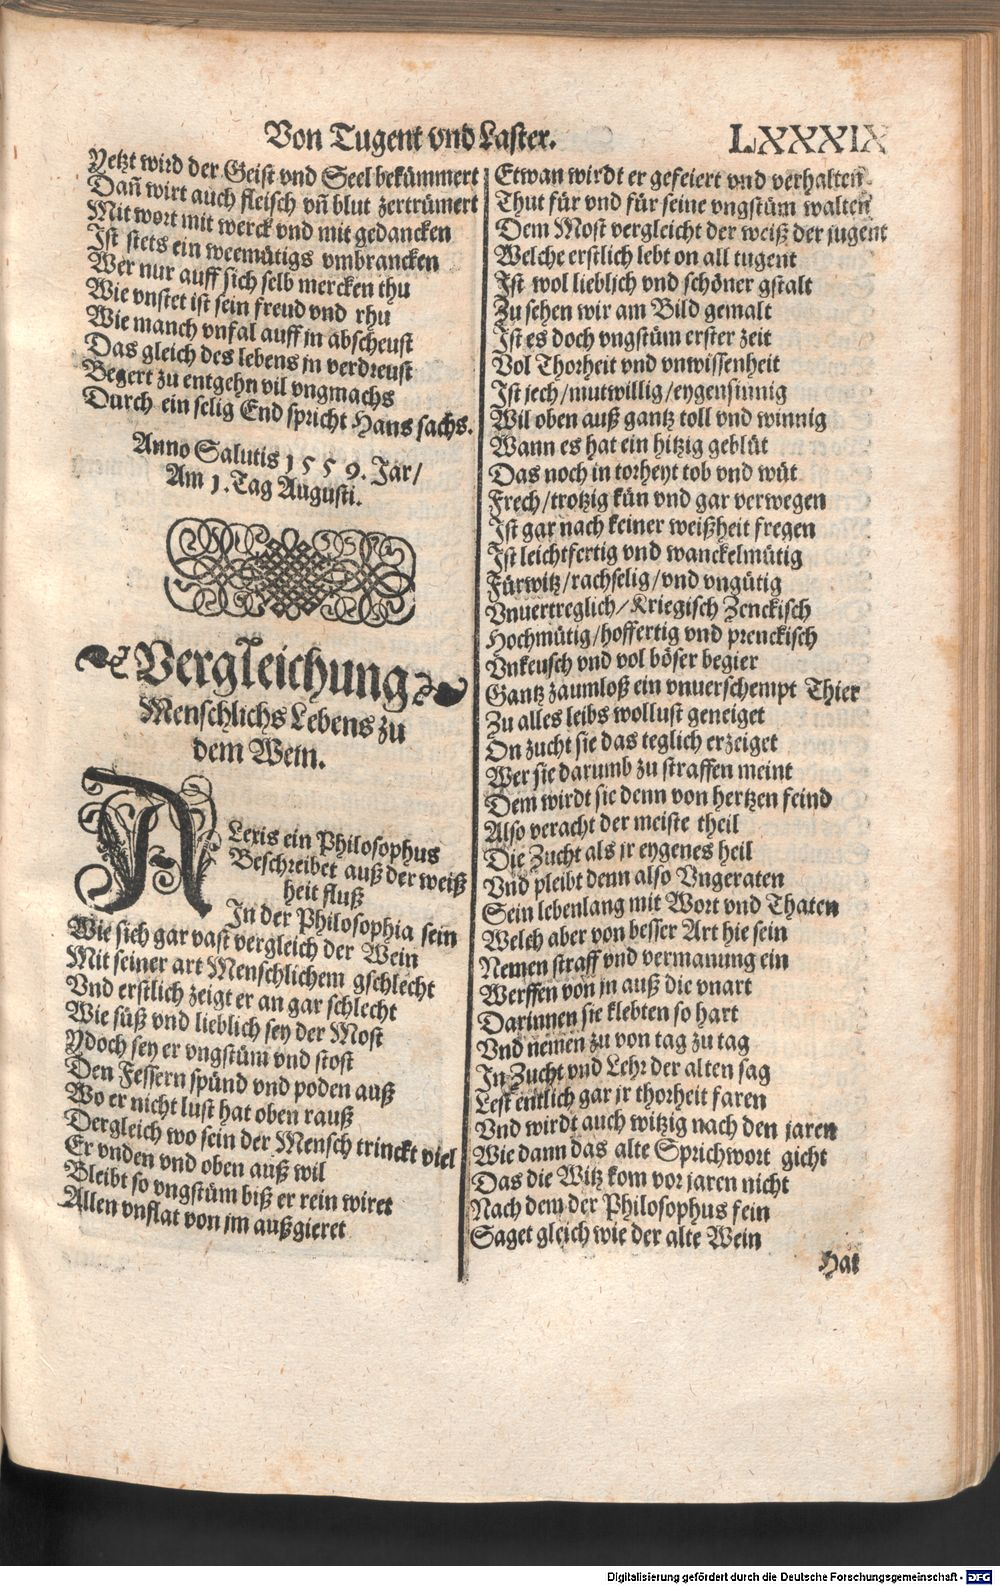 Von Tugent vnd Laster.
LXXXIX
Yetzt wird der Geist vnd Seel bekümmert
Dañ wirt auch fleisch vñ blut zertrümert
Mit wort mit werck vnd mit gedancken
Ist stets ein weemütigs vmbrancken
Wer nur auff sich selb mercken thu
Wie vnstet ist sein freud vnd rhu
Wie manch vnfal auff in abscheust
Das gleich des lebens in verdreust
Begert zu entgehn vil vngmachs
Durch ein selig End spricht Hans sachs.
Anno Salutis 1559. Jar/
Am 1. Tag Augusti.
Vergleichung
Menschlichs Lebens zu
dem Wein.
ALexis ein Philosophus
Beschreibet auß der weiß
heit fluß
In der Philosophia sein
Wie sich gar vast vergleich der Wein
Mit seiner art Menschlichem gschlecht
Vnd erstlich zeigt er an gar schlecht
Wie süß vnd lieblich sey der Most
Ydoch sey er vngstüm vnd stost
Den Fessern spünd vnd poden auß
Wo er nicht lust hat oben rauß
Dergleich wo sein der Mensch trinckt viel
Er vnden vnd oben auß wil
Bleibt so vngstüm biß er rein wiret
Allen vnflat von im außgieret
Etwan wirdt er gefeiert vnd verhalten
Thut für vnd für seine vngstüm walten
Dem Most vergleicht der weiß der jugent
Welche erstlich lebt on all tugent
Ist wol lieblich vnd schöner gstalt
Zu sehen wir am Bild gemalt
Ist es doch vngstüm erster zeit
Vol Thorheit vnd vnwissenheit
Ist jech/mutwillig/eygensinnig
Wil oben auß gantz toll vnd winnig
Wann es hat ein hitzig geblüt
Das noch in torheyt tob vnd wüt
Frech/trotzig kün vnd gar verwegen
Ist gar nach keiner weißheit fregen
Ist leichtfertig vnd wanckelmütig
Fürwitz/rachselig/vnd vngütig
Vnuertreglich/Kriegisch Zenckisch
Hochmütig/hoffertig vnd prenckisch
Vnkeusch vnd vol böser begier
Gantz zaumloß ein vnuerschempt Thier
Zu alles leibs wollust geneiget
On zucht sie das teglich erzeiget
Wer sie darumb zu straffen meint
Dem wirdt sie denn von hertzen feind
Also veracht der meiste theil
Die Zucht als jr eygenes heil
Vnd pleibt denn also Vngeraten
Sein lebenlang mit Wort vnd Thaten
Welch aber von besser Art hie sein
Nemen straff vnd vermanung ein
Werffen von in auß die vnart
Darinnen sie klebten so hart
Vnd nemen zu von tag zu tag
In Zucht vnd Lehr der alten sag
Lest entlich gar jr thorheit faren
Vnd wirdt auch witzig nach den jaren
Wie dann das alte Sprichwort gicht
Das die Witz kom vor jaren nicht
Nach dem der Philosophus fein
Saget gleich wie der alte Wein
Hat
Digitalisierung gefördert durch die Deutsche Forschungsgemeinschaft - DFG